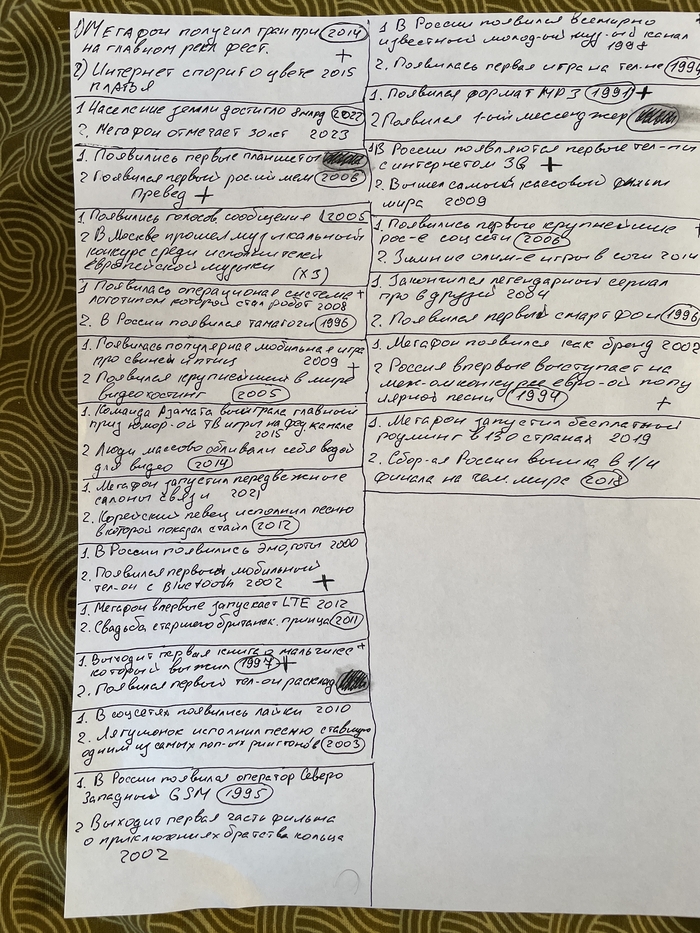 1) Мегафон получил гран при 2014
на главном рекл фест. +
2) Интернет спорит о цвете 2015
платья
1. Население земли достигло 8 млрд 2022
2. Мегафон отмечает 30 лет 2023
1. Появились первые планшеты
2 Появился первый рос-ий мем 2006
Превед +
1. Появились голосов. сообщения 2005
2 В Москве прошел музыкальный
конкурс среди исполнителей
европейской музыки (х3)
1 Появилась операционая система +
логотипом которой стал робот 2008
2. В России появился тамагочи 1996
1. Появилась популярная мобильная игра
про свиней и птиц 2009 +
2 Появился крупнейший в мире
видеохостинг 2005
1. Команда Азамата выиграла главный
приз юмор-ой ТВ игры на фед. канале
2015
2 Люди массово обливали себя водой
для видео 2014
1. Мегафон запустил передвежные
салоны связи 2021
2. Корейский певец исполнил песню
в которой показал стайл 2012
1. В России появились эмо, готы 2000
2. Появился первый мобильный
тел-он с Bluetooth 2002 +
1. Мегафон впервые запускает LTE 2012
2. Свадьба старшего британск. принца 2011
1. Выходит первая книга о мальчике +
который выжил 1997 +
2. Появился первый тел-он расклад
1. В соцсетях появились лайки 2010
2. Лягушонок исполнил песню ставшую
одним из самых поп-ых рингтонов 2003
1. В России появился оператор Северо
Западный GSM 1995
2 Выходит первая часть фильма
о приключениях братства кольца
2002
1 В России появился всемирно
известный молод-ый муз-ый канал
1998
2. Появилась первая игра на тел-не 199
1. Появился формат MP3 1991 +
2 Появился 1-ый мессенджер
1 В России появляются первые тел-ны
с интернетом 3G +
2. Вышел самый кассовый фильм
мира 2009
1. Появились первые крупнейшие +
рос-е соц сети 2006
2. Зимние олим-е игры в сочи 2014
1. Закончился легендарный сериал
про в друзей 2004
2. Появился первый смартфон 1996
1. Мегафон появился как бренд 2002
2 Россия впервые выступает на
меж-ом конкурсе евро-ой попу
лярной песни 1994
+
1. Мегафон запустил бесплатный
роуминг в 130 странах 2019
2. Сбор-ая России вышла в 1/4
финала на чем. мире 2018